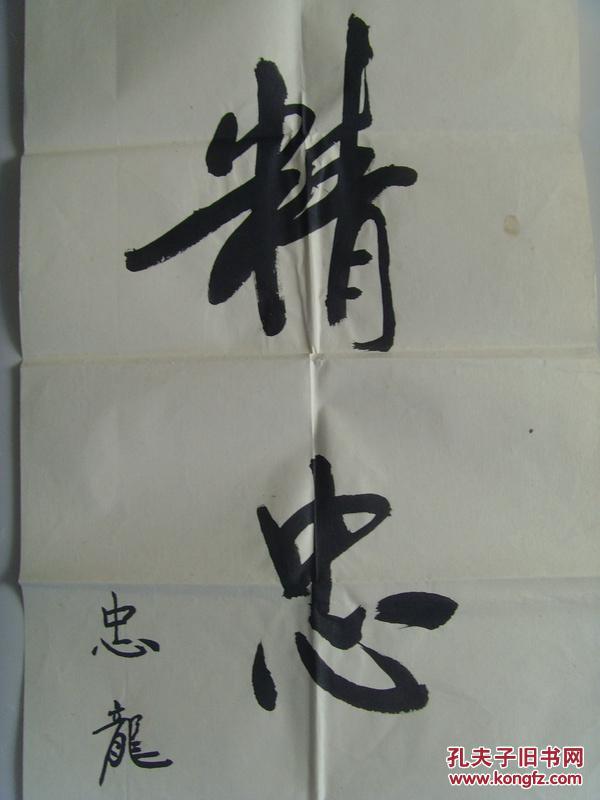 精忠
忠龍
孔夫子旧书网
www.kongfz.com